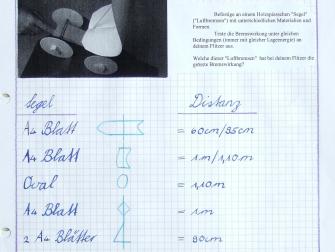 Befestige an einem Holzspiesschen "Segel"
("Luftbremsen") mit unterschiedlichen Materialien und
Formen.
Teste die Bremswirkung unter gleichen
Bedingungen (immer mit gleicher Lageenergie) an
deinem Flitzer aus.
Welche dieser "Luftbremsen" hat bei deinem Flitzer die
grösste Bremswirkung?
Segel Distanz
A4 Blatt = 60cm/85cm
A4 Blatt = 1m/1,10m
Oval = 1,10m
A4 Blatt = 1m
2 A4 Blätter = 80cm